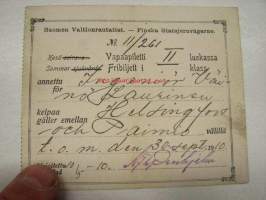 Suomen Valtionrautatiet. – Finska Statsjernvägarne.
№ 11/261
Kesä Vapaapiletti II luokassa
Sommar Fribiljett i klass
annettu för Ingeniör Väi-
nö Laurinen
kelpaa gäller emellan Helsingfors
och Paimio välillä
t. o. m. den 30 sept. 1910.